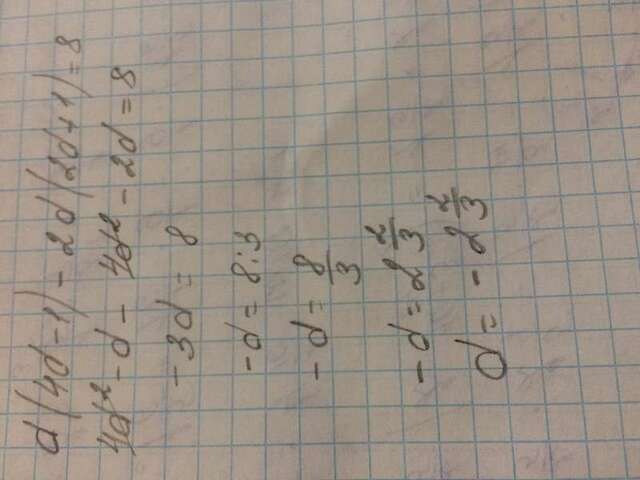 d(4d-1)-2d(2d+1)=8
4d²-d-4d²-2d=8
-3d=8
-d=8:3
-d=8/3
-d=2 2/3
d=-2 2/3